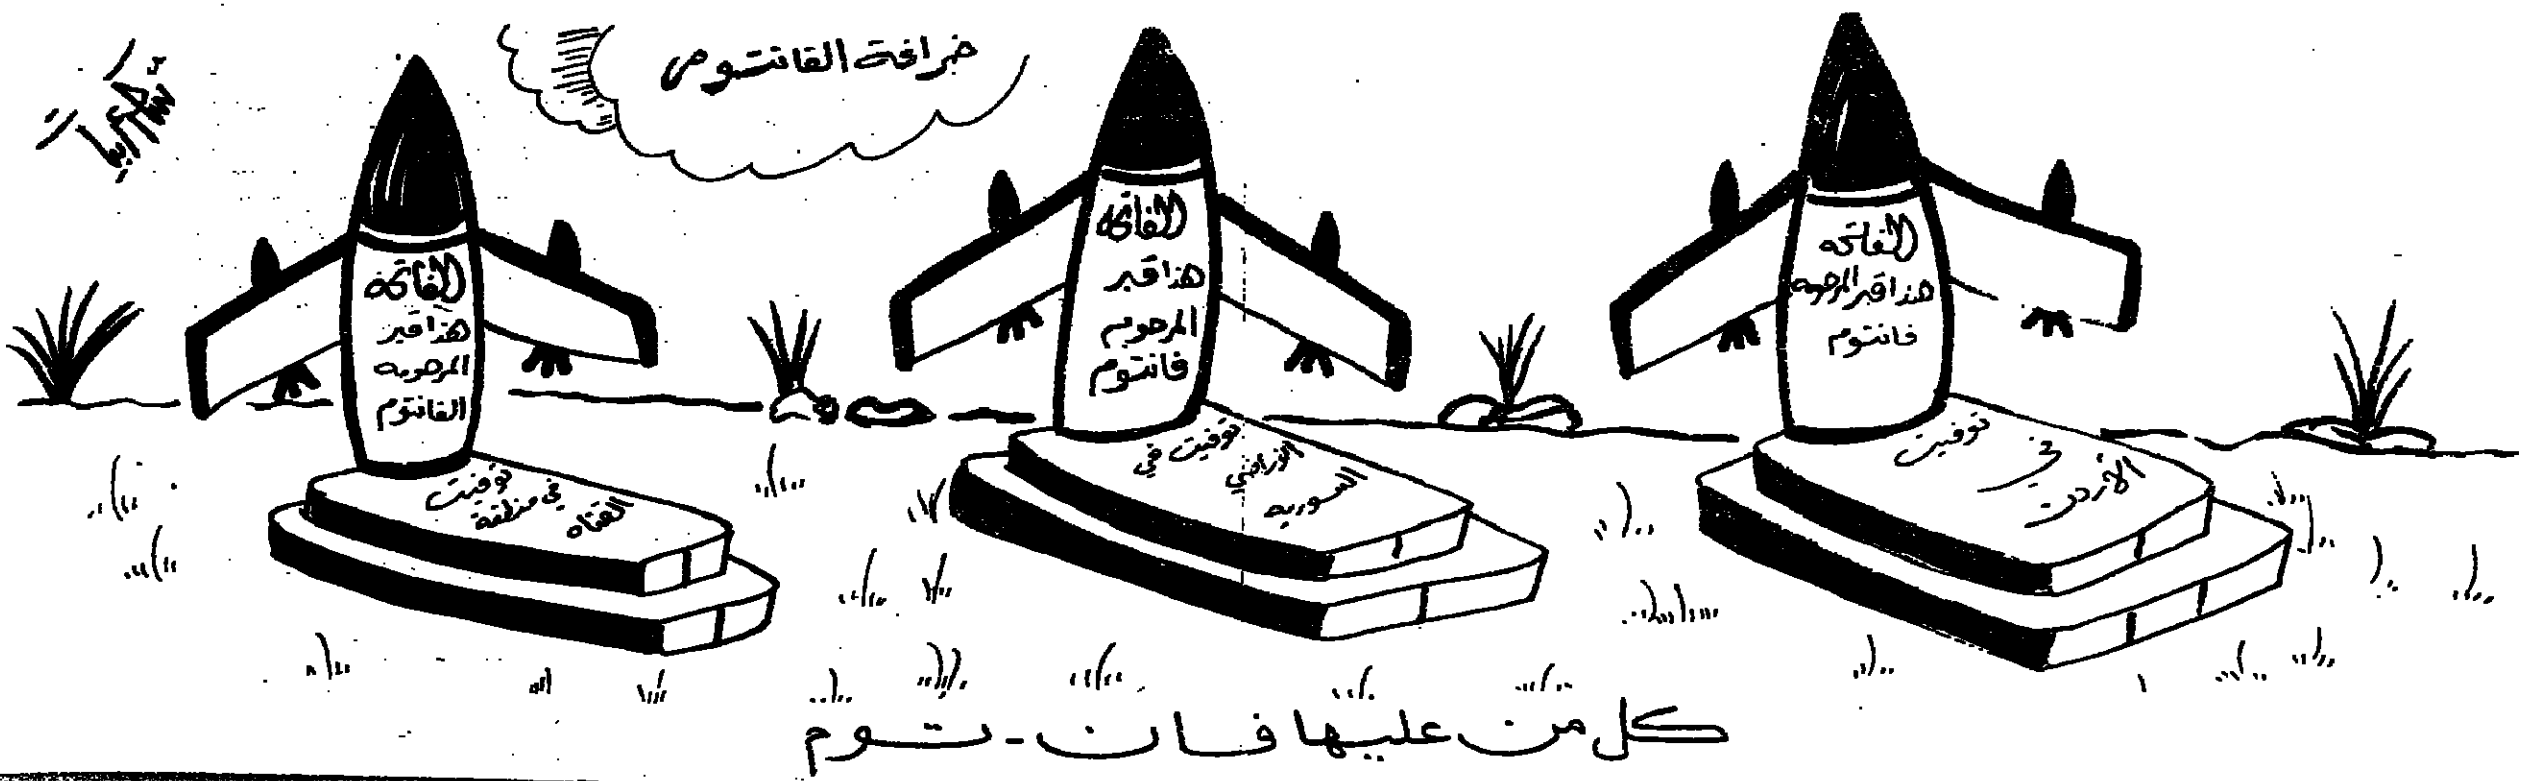 خرافة الفانتوم
الفاتحة
هذا قبر
المرحومه
الفانتوم
توفيت
في منطقة
القناه
الفاتحة
هذا قبر
المرحوم
فانتوم
توفيت في
الاراضي
السوريه
الفاتحه
هذا قبر المرحومه
فانتوم
توفيت
في
الأردن
كل من عليها فان - توم